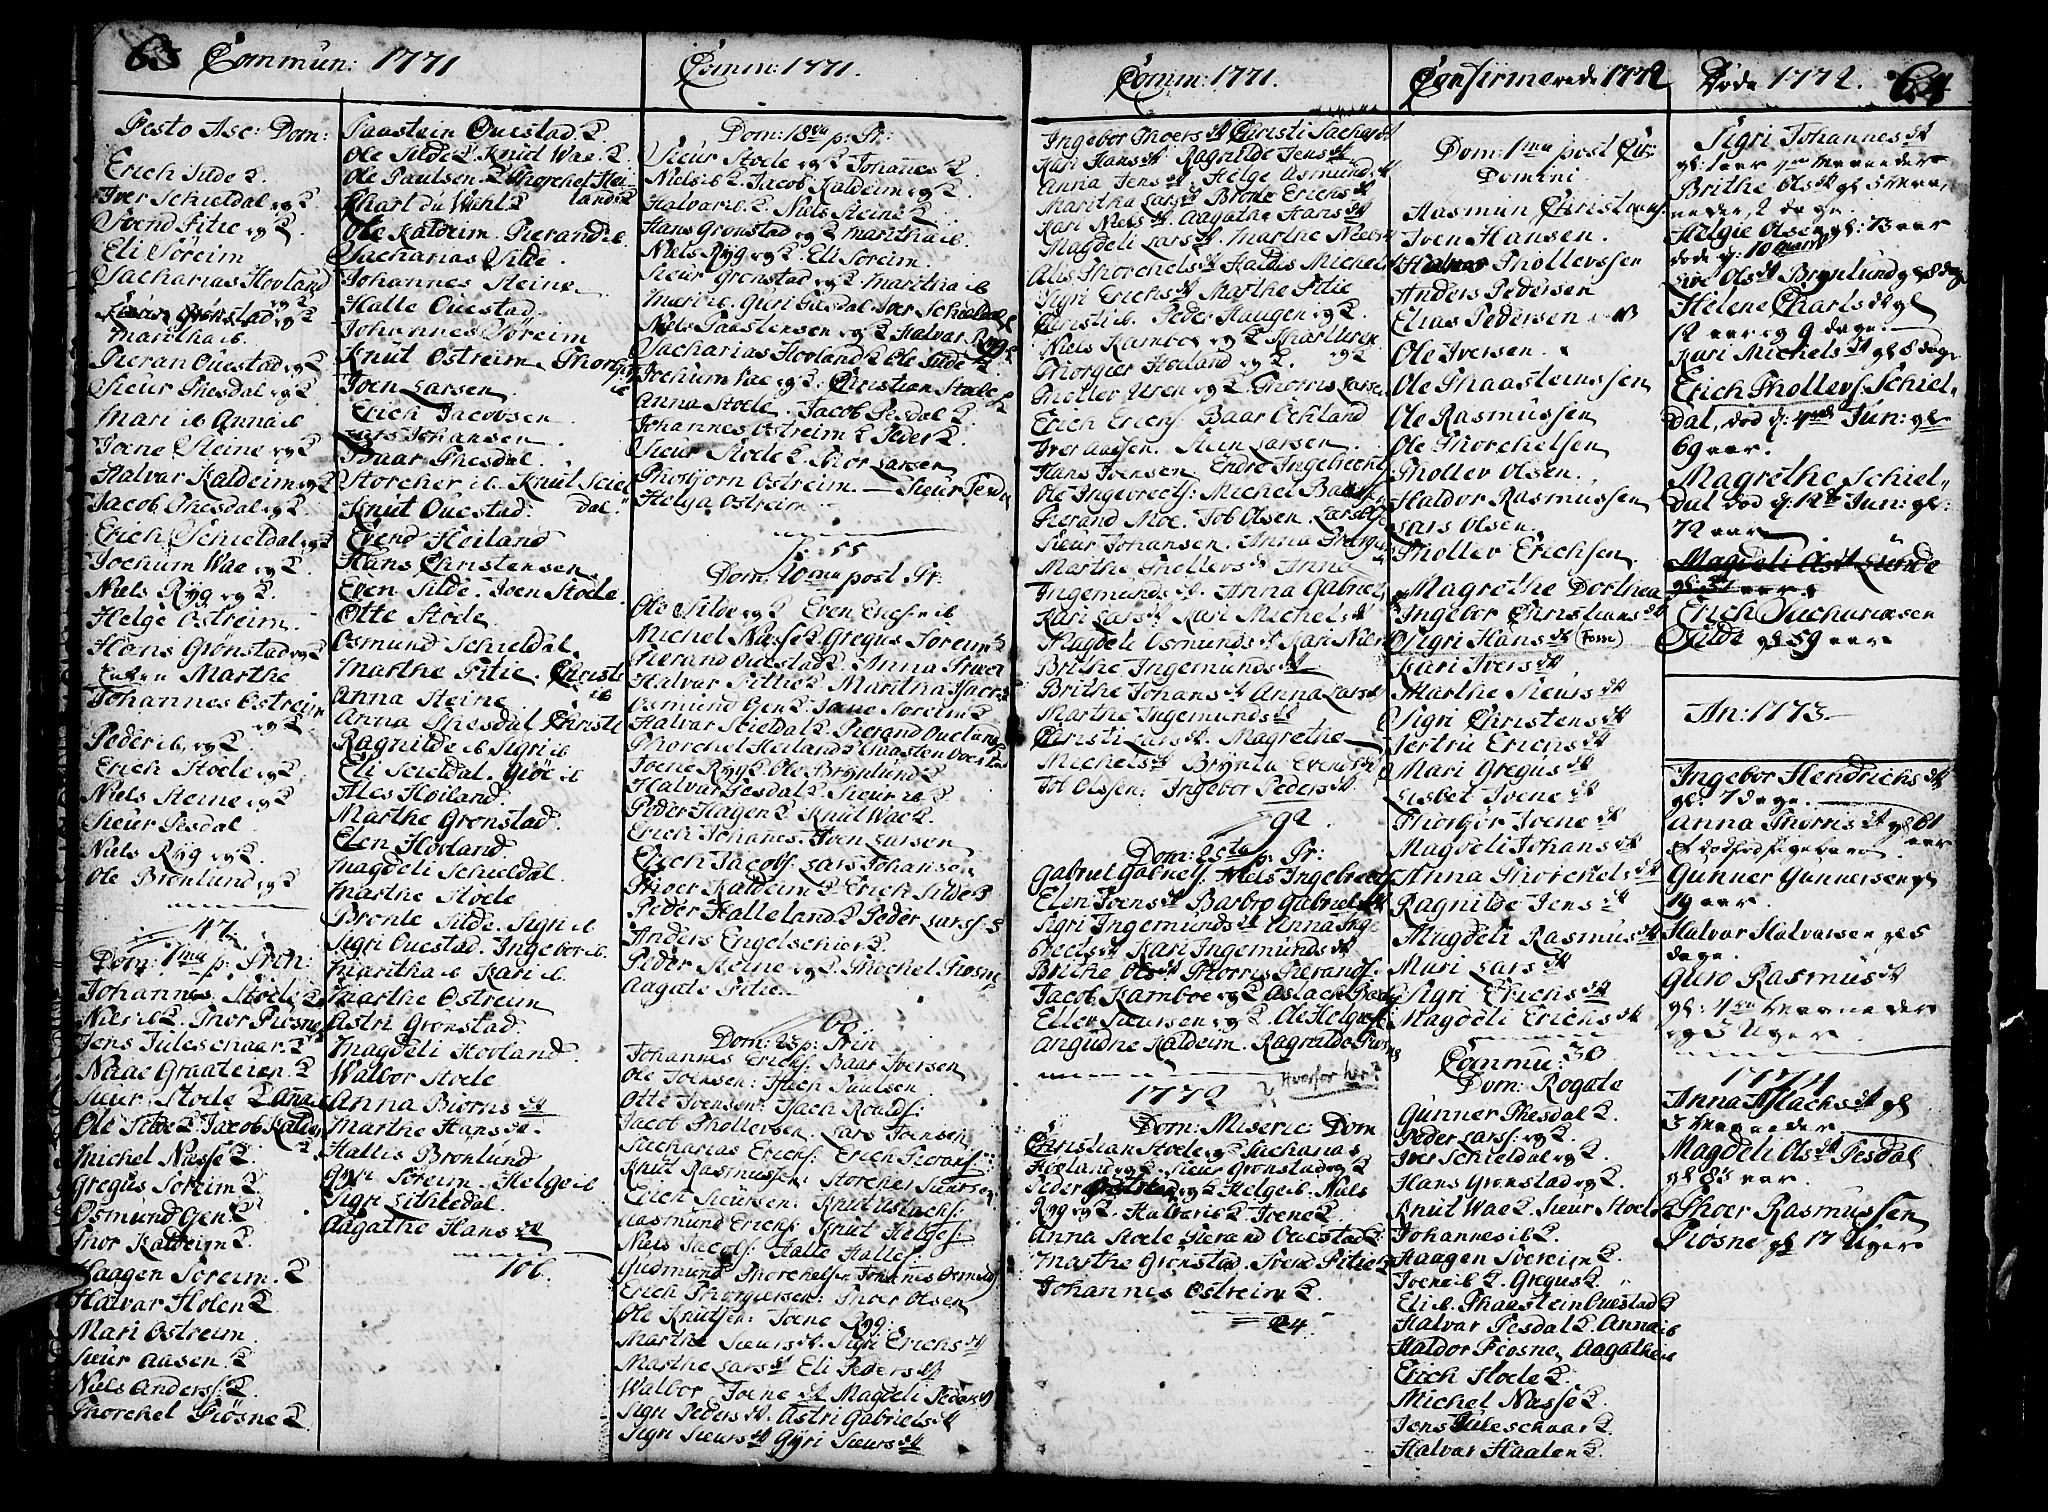 63 Commun: 1771
Festo Asc: Dom:
Erich Silde 2.
Iver Schieldal og 2
Svend Pitie og 2.
Eli Søreim
Sacharias Hovland
og 2
Sieur Grønstad og 2
Martha ib.
Pieran Ouestad og 2
Sieur Thesdal og 2.
Mari ib Anna ib
Joene Steine og 2
Halvar Kaldeim og 2
Jacob Thesdal og 2
Erich Schieldal og 2
Jochum Wae og 2.
Niels Ryg og 2.
Helge Ostreim.
Hans Grønstad og 2
Enken Marthe
Johannes Ostreim
og 2.
Peder ib. og 2
Erich Støle og 2
Niels Steine og 2
Sieur Pesdal
Niels Ryg og 2.
Ole Brønlund og 2
47
Dom: 7ma p: Trin:
Johannes Støle 2
Niels ib 2. Thor Piøsne
Jens Juleschaar 2
Naae Graateren 2
Sieur Støle 2 Anna
Ole Silde 2 Jacob Kaldeim
2.
Michel Næsse 2.
Gregus Soreim 2.
Osmund Gen 2
Thor Kaldeim 2.
Haagen Soreim. 2
Halvar Holen 2
Mari Ostreim.
Sieur Aasen. 2
Niels Anders: 2.
Thorchel Piøsne 2
Faastein Ouestad 2
Ole Silde 2. Knud Wae. 2
Ole Paulsen. 2 Thorchel Hei-
Charl du Wahl 2 lands 2
Ole Kaldeim. Pierand ib.
Sacharias Silde.
Johannes Steine
Halle Ouestad.
Johannes Søreim
Knut Ostreim. Thorgier
ib
Joen Larsen
Erich Jacobsen
Lars Johansen
Baar Thesdal.
Storcher ib. Knut Sciel
Knut Ouestad. dal"
Evend Høiland
Hans Christensen
Even Silde. Joen Støle.
Otte Støle
Osmund Schieldal.
Marthe Pitie. Christi
ib
Anna Steine
Anna Thesdal Christi
Ragnilde ib Sigri ib
Eli Scieldal. Giøe ib
Ales Høiland.
Marthe Grønstad.
Elen Hovland
Magdeli Schieldal.
Marthe Støle
Brønle Silde. Sigri ib
Sigri Ouestad. Ingebor ib.
Maritha ib Kari ib.
Marthe Ostreim
Astri Grønstad
Magdeli Hovland.
Walbor Støle
Anna Biørnsdt
Marthe Hansdt.
Hallis Brønlund
Gyri Søreim. Helge ib
Sigri Lithledal.
Aagathe Hansdt
106.
Comm: 1771.
Dom: 18va p: Tr:
Sieur Støle og 2 Johannes 2
Niels ib 2. Jacob Kaldeim og 2.
Halvar ib. 2. Niels Steine 2
Hans Grønstad og 2 Maritha ib
Niels Ryg og 2. Eli Soreim.
Sieur Grønstad og 2 Maritha ib
Mari ib. Guri Tiesdal. Iver Schieldal 2
Niels Faastensen og 2 Halvar Ryg 2
Sacharias Hovland 2 Ole Silde 2
Jochum Vae og 2. Christian Støle 2
Anna Støle. Jacob Pesdal 2.
Johannes Ostreim 2 Peder 2.
Sieur Støle 2. Thor Larsen
Thosbjorn Ostreim. Sieur Ferde
Helga Ostreim
S: 55
Dom: 20ma post Tr:
Ole Silde og 2 Even Erichs: ib
Michel Næsse 2 Gregus Soreim 2
Pierand Ouestad 2. Anna
Halvar Pittie 2 Maritha
Osmund Gen 2 Joene Soreim 2
Halvar Stieldal 2 Pierand Ouestad
Thorchel Heiland 2 Faasten Ovestad
Joene Ryg 2. Ole Brynlund 2
Halvar Pesdal 2. Sieur ib 2
Peder Hagen 2 Knut Wae 2
Erich Johanes. Iven Larsen
Erich Jacobs: Lars Johansen
Thoer Kaldeim 2 Erich Silde 2
Peder Halleland 2 Peder Larss: 2
Anders Engelschior 2
Peder Steine og 2. Thochel Piøsne
Aagate Pitie.
60
Dom: 23 p: Trin
Johannes Erichs: Baar Iversen
Ole Joensen: Isach Paulsen
Otte Ivensen: Isach Roalds:
Jacob Thollevsen Lars Joensen
Sacharias Erichs: Erich Pierans:
Knut Rasmusse: Storcher Sieursen
Erich Sieursen: Knut Aslachs:
Aasmund Erichs: Knut Helges:
Niels Jacobs: Halle Halles:
Gudmund Thorchelsen Johannes Osmunds:
Erich Thorgiersen: Thoer Olsen
Ole Knutsen: Joene Ryg:
Marthe Sieursdt. Sigri Erichsdt
Marthe Larsdt Eli Pedersdt
Walbor Joenedt Magdeli Pedersdt
Sigri Pedersdt. Astri Gabrielsdt
Sigri Sieursdt Gyri Sieursdt
Comm: 1771.
Ingebor Thoersdt Christi Sachardt
Kari Hansdt Ragnilde Jensdt
Anna Jensdt Helge Osmundsdt
Maritha Larsdt Brønle Erichsdt
Kari Nielsdt. Aagathe Hansdt
Magdeli Larsdt. Marthe Nielsdt
Alis Thorchelsdt Haldis Michels
Sigri Erichsdt Marthe Pitie
Christi ib. Peder Haugen og 2.
Niels Kamboe og 2 Charl Uren
Thorgier Høiland og 2. og 2
Tholler Uren og 2 Thorris Larsen
Erich Erichs: Baar Ochland
Iver Aasen. Sten Larsen.
Hans Ivensen. Endre Ingebrecht
Ole Ingebrects: Michel Baars:
Pierand Moe. Job Olsen. Lars
Sieur Johansen. Anna
Marthe Thollevsdt Anne
Ingemundsdt. Anna Gabriels
Kari Larsdt Kari Michelsdt
Magdeli Osmundsdt Kari
Brithe Ingemundsdt
Brithe Johansdt Anna Larsdt
Marthe Ingemundsdt
Christi Larsdt. Magrethe
Michelsdt Brynla Evensdt
Job Olssen: Ingebor Pedersdt
92.
Dom: 25ta p: Tr:
Gabriel Gabriels: Niels Ingebrects
Elen Joensdt Barbro Gabrielsdt
Sigri Ingemundsdt Anna Inge
brectsdt Kari Ingemundsdt
Brithe Olsdt Thorris Pierands:
Jacob Kamboe og 2 Aslach
Eller Sieursen og 2. Ole Helges:
Angudne Kaldeim. Ragnilde
? Hvorfor her?
1772
Dom: Miseric: Dom
Christian Støle og 2 Sacharias
Hovland og 2. Sieur Grønstad og 2
Peder og 2 Helge ib. Niels
Ryg og 2. Halvar ib 2 Joene 2
Anna Støle Pierand Ouestad 2
Marthe Grønstad. Svend Pitie 2
Johannes Ostreim 2.
24.
Confirmerede 1772
Dom: 1ma post Cir:
Domini
Aasmun Christians:
Iven Hansen.
Halvor Thollevssen
Anders Pedersen
Elias Pedersen
Ole Iversen.
Ole Thaasteinssen
Ole Rasmussen
Ole Thorchelsen
Thollev Olsen.
Haldor Rasmussen
Lars Olsen.
Thollev Erichsen
Magrethe Dorthea
Ingebor Christiansdt
Sigri Hansdt (Tom)
Kari Iversdt
Marthe Sieursdt
Sigri Christensdt
Jertru Erichsdt
Mari Gregusdt
Lisbet Joenedt
Thorbor Joenedt
Magdeli Johansdt
Anna Thorchelsdt
Ragnilde Jensdt
Magdeli Rasmusdt
Mari Larsdt
Sigri Erichsdt
Magdeli Erichsdt
30
Commu:
Dom: Rogate
Gunner Thesdal 2.
Peder Larss: og 2.
Iver Schieldal og 2.
Hans Grønstad og 2.
Knut Wae 2. Sieur Støle 2
Johannes ib 2.
Haagen Svereim 2.
Joene ib 2. Gregus 2.
Eli ib. Thaastein Ouestad 2
Halvar Pesdal 2. Anna ib
Haldor Piøsne, Aagathe ib
Erich Støle 2.
Michel Næsse 2.
Jens Juleschaar 2.
Halvar Haalen 2
Døde 1772. 64
Sigri Johannesdt
gl: 1 aar
Brithe Olsdt gl 5 Maa,
neder, 2 dage.
Helgie Olsen gl: 73 aar
døde d: 10 Marti
Olsdt Brynlund gl 8 dage
Helene Charlsdt gl
12 aar og 9 dage.
Kari Michelsdt gl 8 dage
Erich Thollevs: Schiel-
dal, død d: 4de Jun: gl
69 aar.
Magrethe Schiel"
dal død d: 12te Jun: gl:
72 aar
Magdeli
Erich Sachariasen
Silde gl 59 aar
An: 1773
Ingebor Hendrichsdt
gl: 7 dage.
Anna Thorrisdt gl 61
aar
Gunner Gunnersen gl
19 aar.
Halvar Halvarsen gl 5
dage.
Guro Rasmusdt
gl: 4re Maaneder
og 3 Uger.
1774
Anna Aslachsdt gl
3 Maaneder.
Magdeli Olsdt Pesdal
gl 83 aar.
Thoer Rasmussen
Piøsne gl 17 Uger